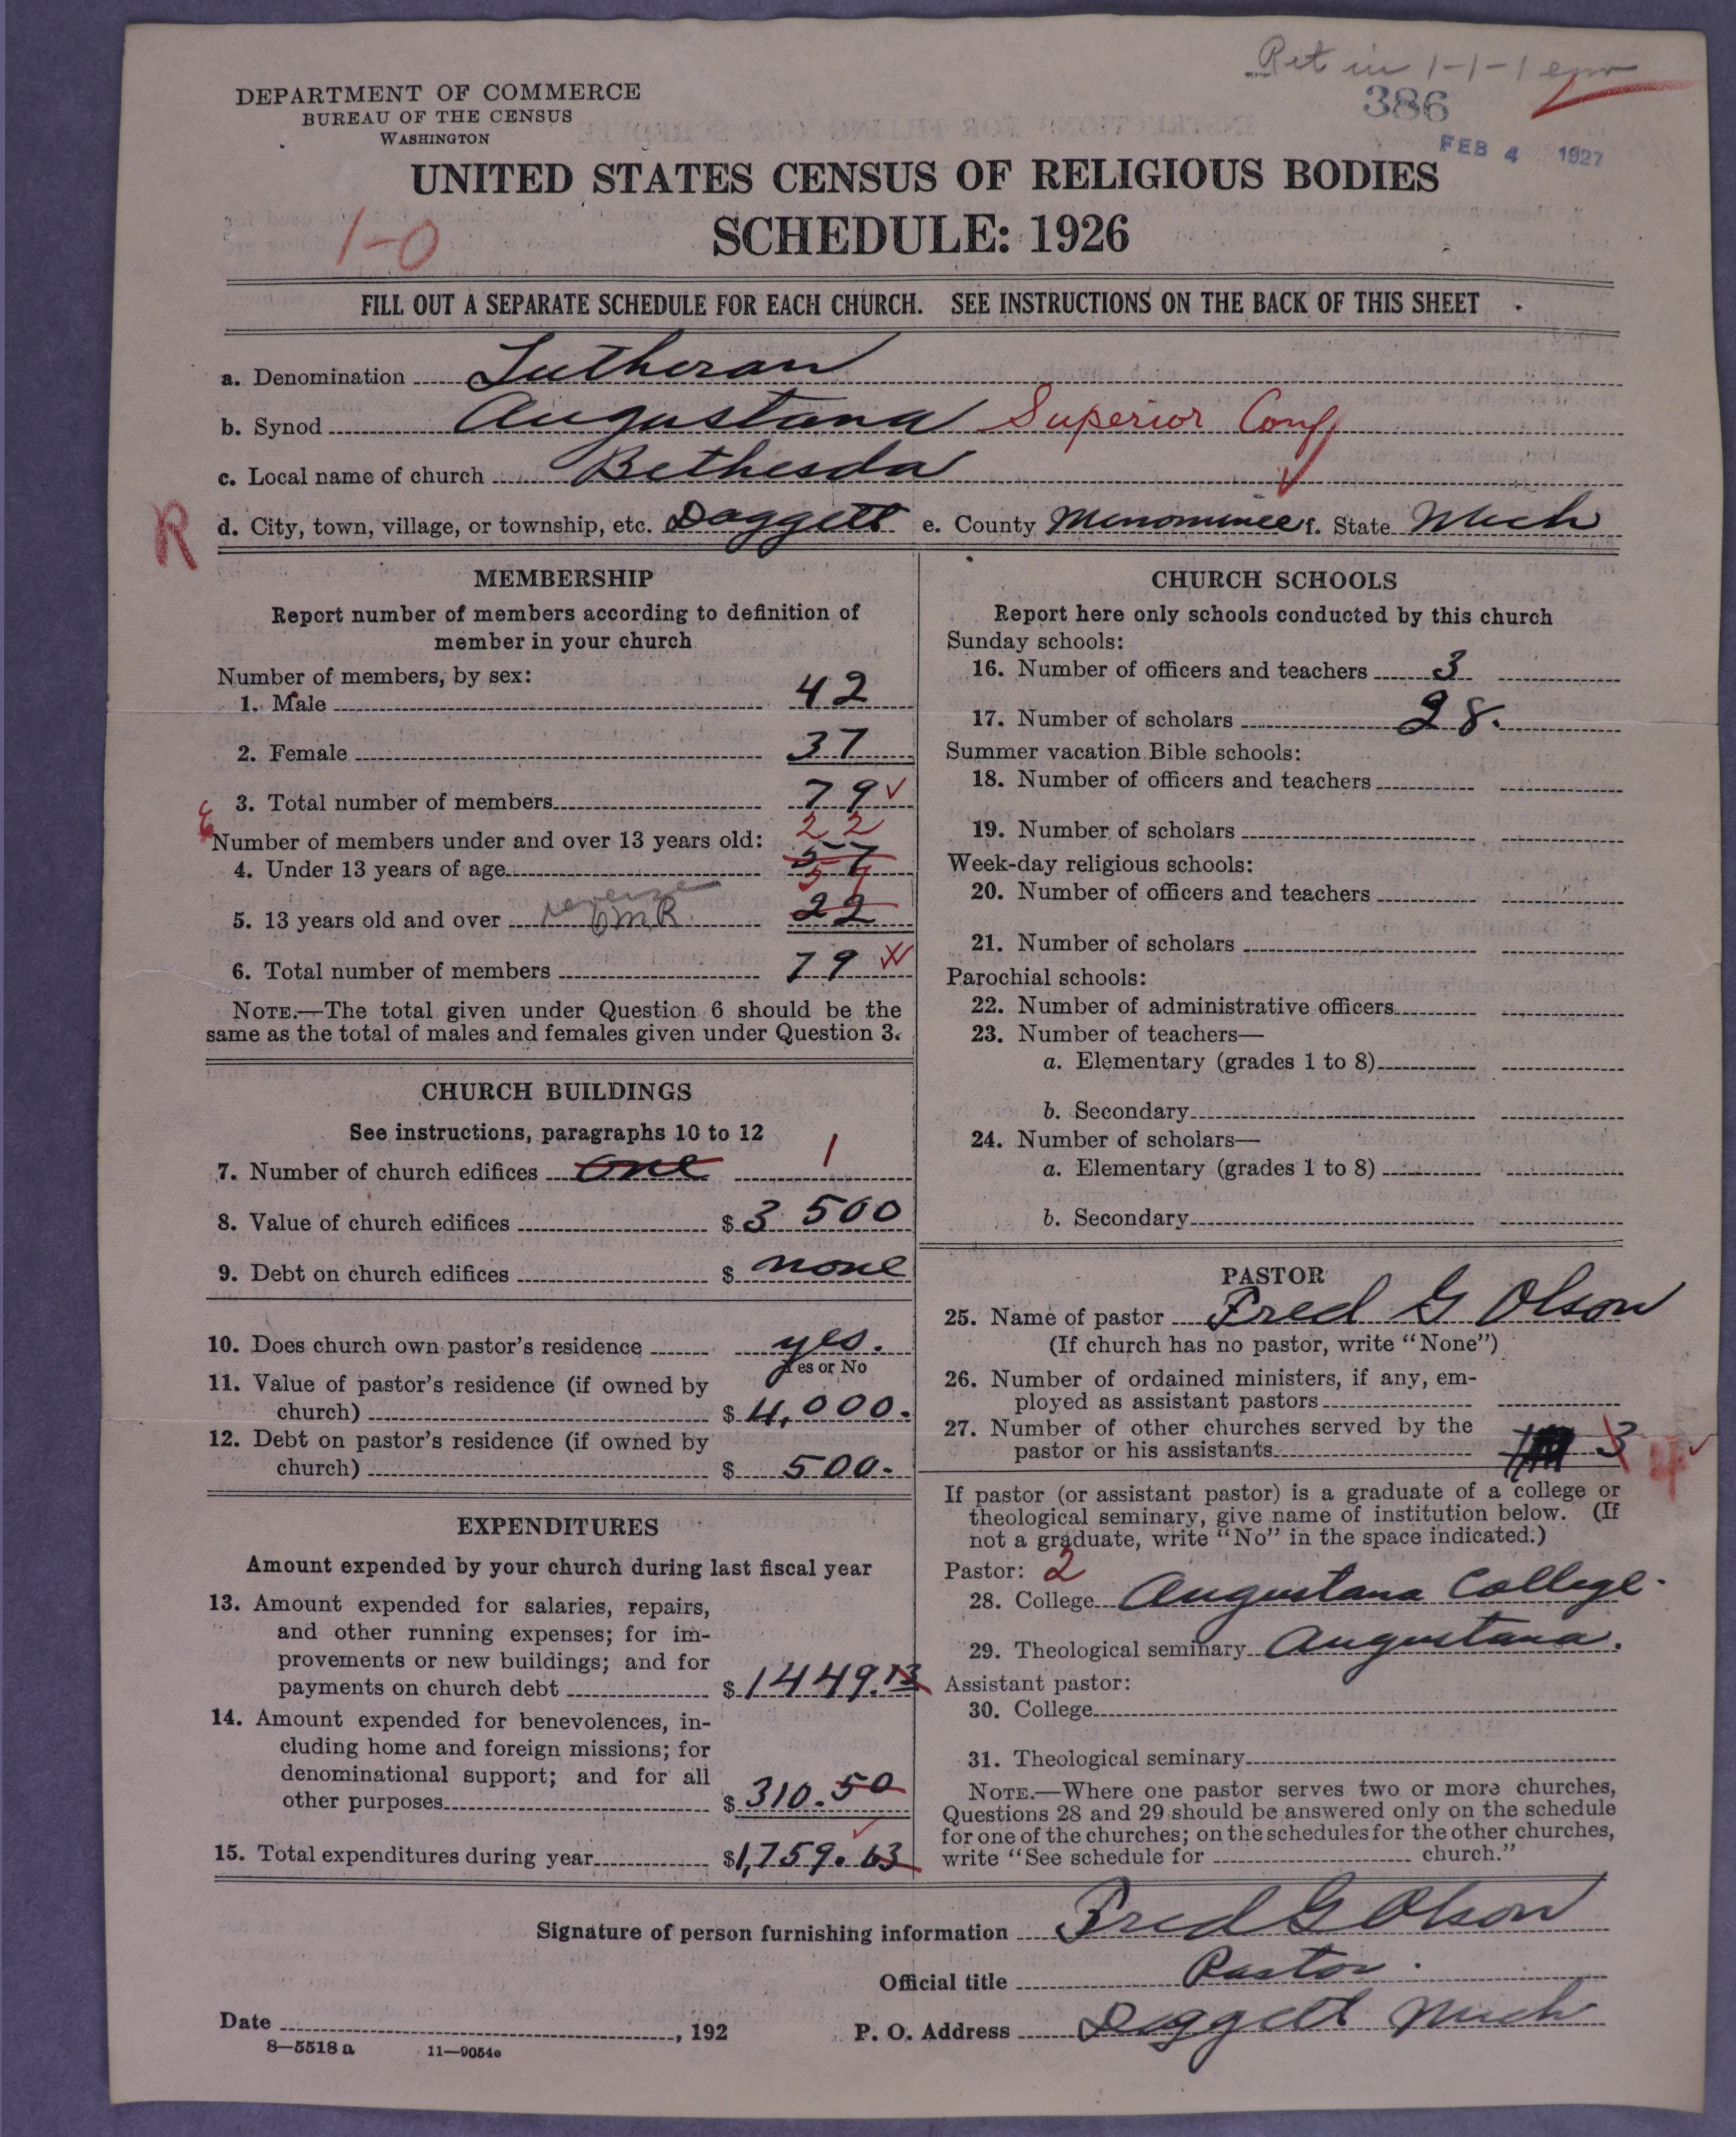 Ret in 1-1-1
386
FEB 4 1927
DEPARTMENT OF COMMERCE
BUREAU OF THE CENSUS
WASHINGTON
UNITED STATES CENSUS OF RELIGIOUS BODIES
SCHEDULE: 1926
1-0
FILL OUT A SEPARATE SCHEDULE FOR EACH CHURCH. SEE INSTRUCTIONS ON THE BACK OF THIS SHEET
a. Denomination Lutheran
b. Synod Augustana Superior Conf
c. Local name of church Bethesda
R
d. City, town, village, or township, etc. Daggett e. County Menominee f. State Mich
MEMBERSHIP
Report number of members according to definition of
member in your church
Number of members, by sex:
1. Male 42
2. Female 37
3. Total number of members 79
22
Number of members under and over 13 years old:
4. Under 13 years of age 57
57
5. 13 years old and over reverse OMR 22
6. Total number of members 79
NOTE.—The total given under Question 6 should be the
same as the total of males and females given under Question 3.
CHURCH BUILDINGS
See instructions, paragraphs 10 to 12
7. Number of church edifices One 1
8. Value of church edifices $3 500
9. Debt on church edifices $ none
10. Does church own pastor's residence yes.
Yes or No
11. Value of pastor's residence (if owned by
church) $4,000.
12. Debt on pastor's residence (if owned by
church) $ 500.
EXPENDITURES
Amount expended by your church during last fiscal year
13. Amount expended for salaries, repairs,
and other running expenses; for im-
provements or new buildings; and for
payments on church debt $1449.13
14. Amount expended for benevolences, in-
cluding home and foreign missions; for
denominational support; and for all
other purposes $310.50
15. Total expenditures during year $1,759.63
CHURCH SCHOOLS
Report here only schools conducted by this church
Sunday schools:
16. Number of officers and teachers 3
17. Number of scholars 28.
Summer vacation Bible schools:
18. Number of officers and teachers
19. Number of scholars
Week-day religious schools:
20. Number of officers and teachers
21. Number of scholars
Parochial schools:
22. Number of administrative officers
23. Number of teachers—
a. Elementary (grades 1 to 8)
b. Secondary
24. Number of scholars—
a. Elementary (grades 1 to 8)
b. Secondary
PASTOR
25. Name of pastor Fred G Olson
(If church has no pastor, write "None")
26. Number of ordained ministers, if any, em-
ployed as assistant pastors
27. Number of other churches served by the
pastor or his assistants 3 4
If pastor (or assistant pastor) is a graduate of a college or
theological seminary, give name of institution below. (If
not a graduate, write "No" in the space indicated.)
Pastor: 2
28. College Augustana College.
29. Theological seminary Augustana.
Assistant pastor:
30. College
31. Theological seminary
NOTE.—Where one pastor serves two or more churches,
Questions 28 and 29 should be answered only on the schedule
for one of the churches; on the schedules for the other churches,
write "See schedule for church."
Signature of person furnishing information Fred G Olson
Official title Pastor.
Date , 192 P. O. Address Daggett Mich
8—5518 a 11—9054e